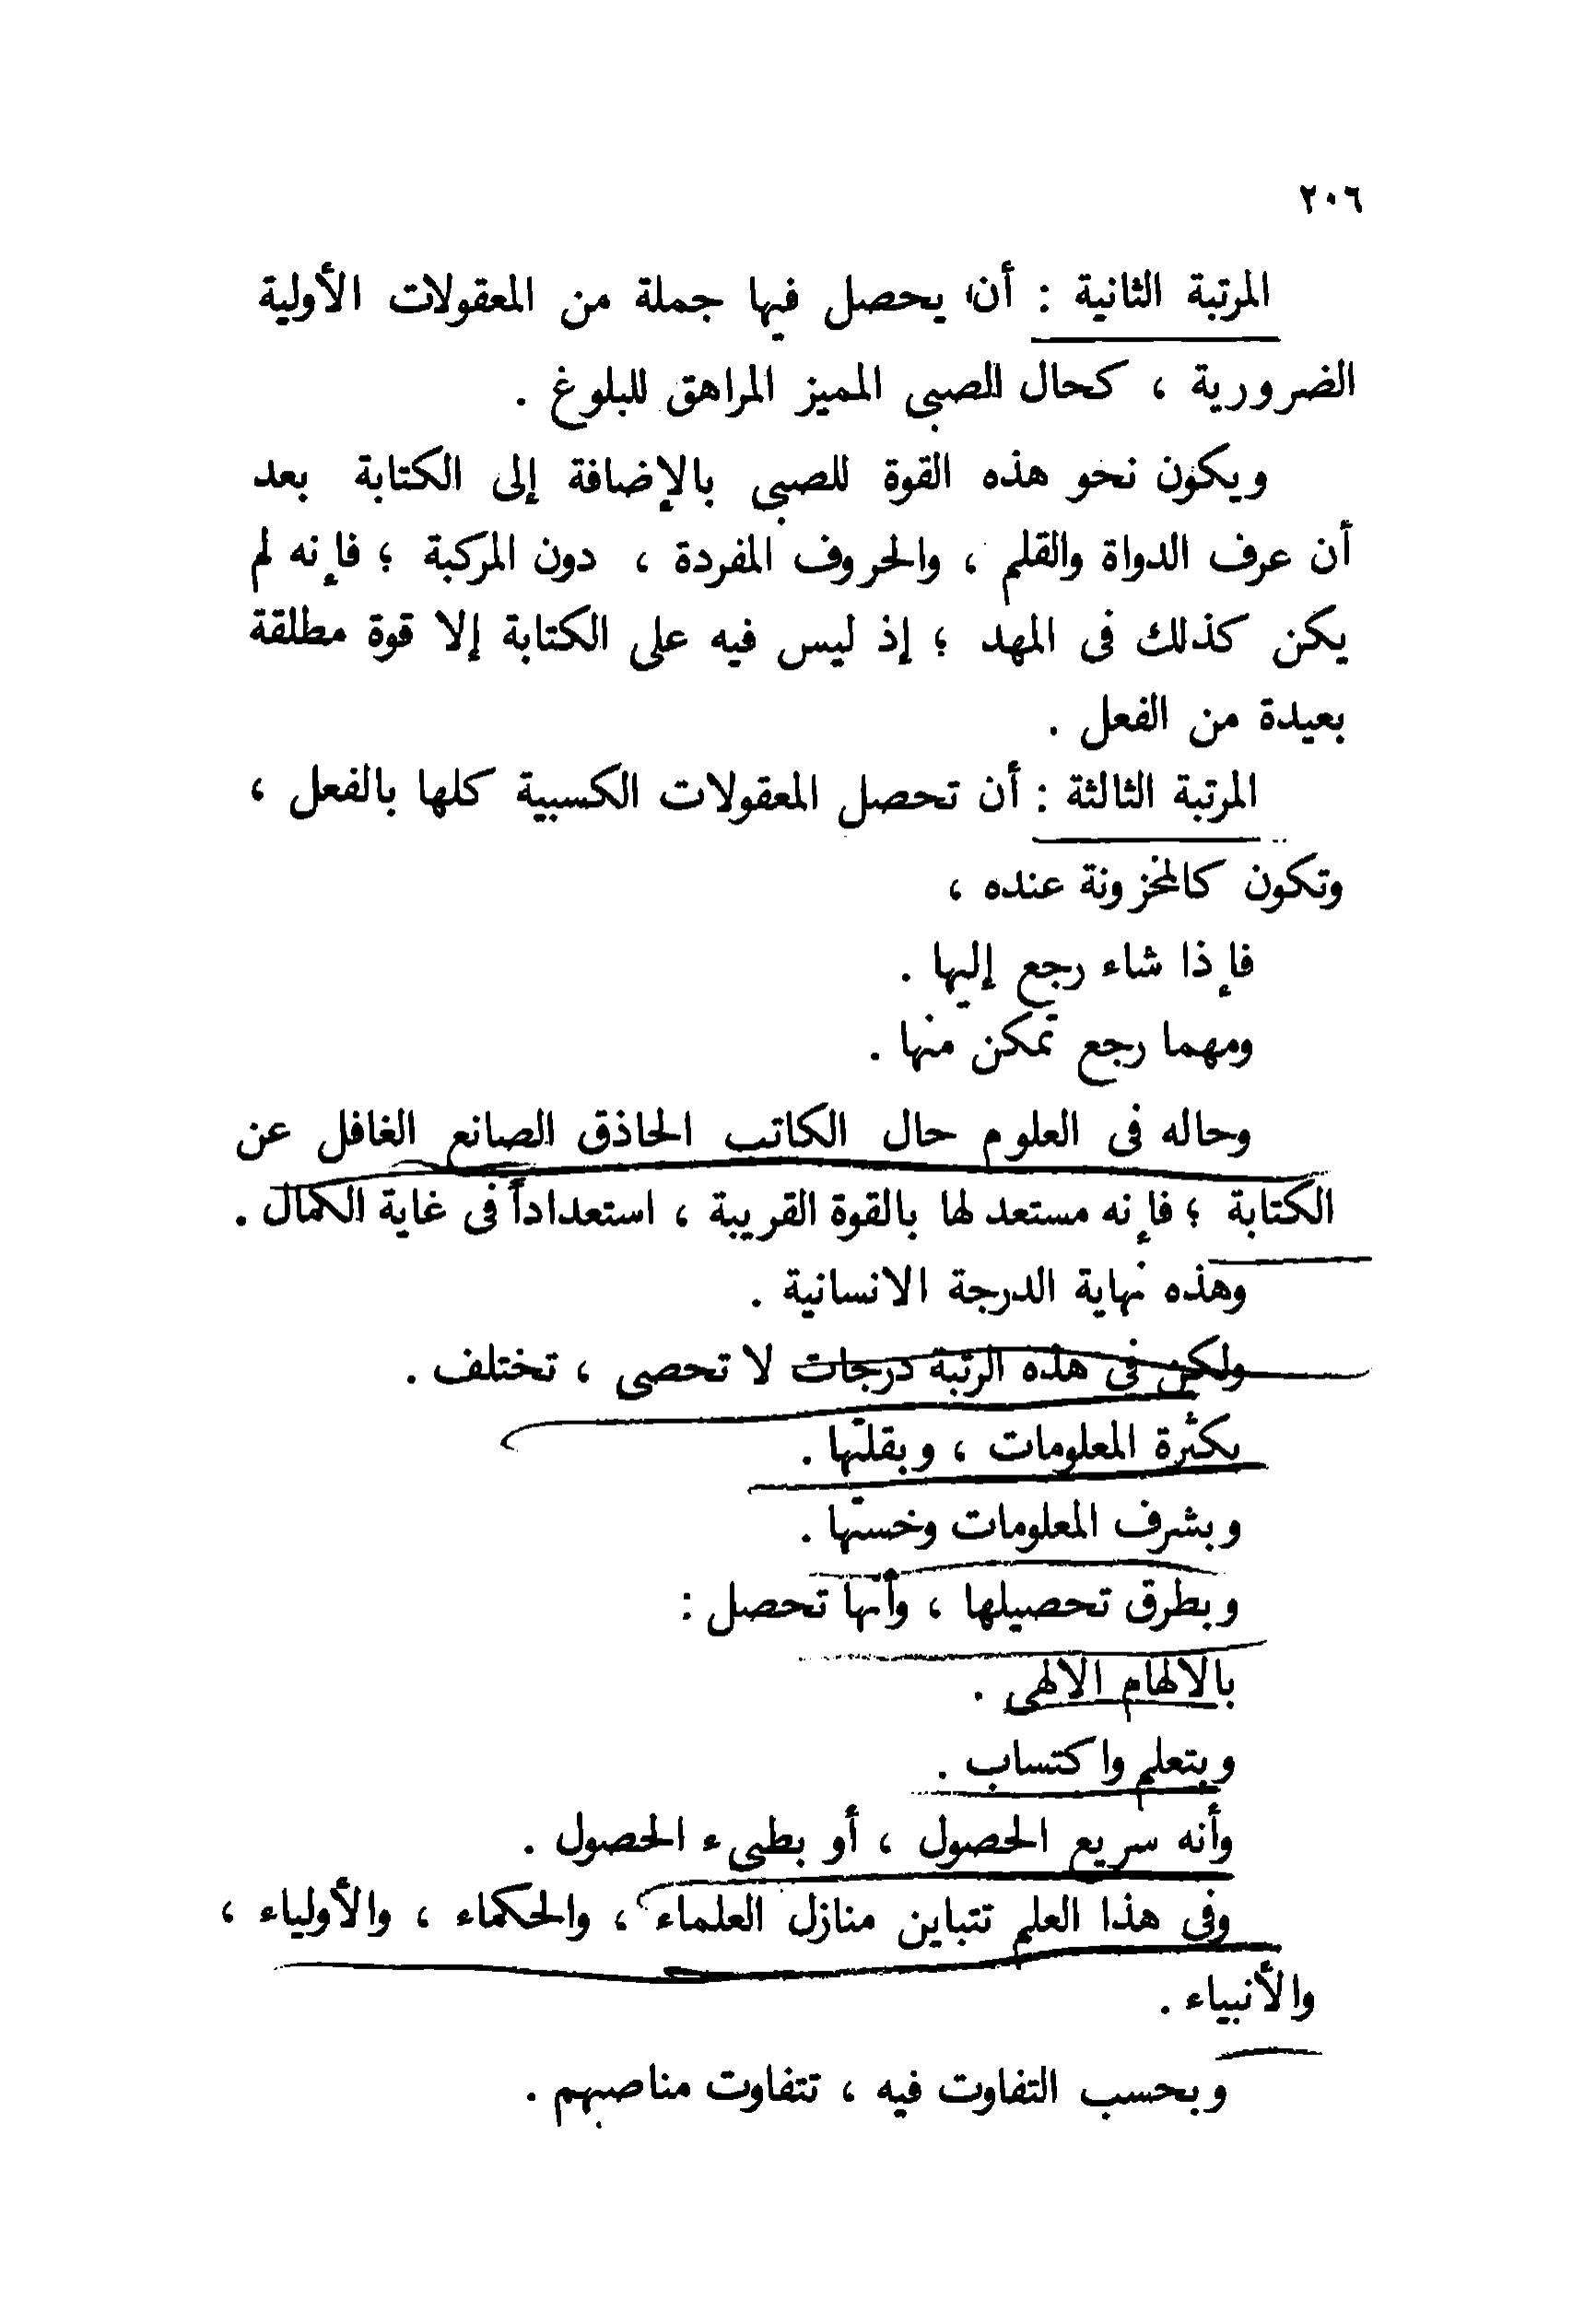 ٢٠٦
المرتبة الثانية : أن يحصل فيها جملة من المعقولات الأولية
الضرورية ، كحال الصبى المميز المراهق للبلوغ .
ويكون نحو هذه القوة للصبى بالإضافة إلى الكتابة بعد
أن عرف الدواة والقلم ، والحروف المفردة ، دون المركبة ؛ فإنه لم
يكن كذلك فى المهد ؛ إذ ليس فيه على الكتابة إلا قوة مطلقة
بعيدة من الفعل .
المرتبة الثالثة : أن تحصل المعقولات الكسبية كلها بالفعل ،
وتكون كالمخزونة عنده ،
فإذا شاء رجع إليها .
ومهما رجع تمكن منها .
وحاله فى العلوم حال الكاتب الحاذق الصانع الغافل عن
الكتابة ؛ فإنه مستعد لها بالقوة القريبة ، استعداداً فى غاية الكمال .
وهذه نهاية الدرجة الانسانية .
ولكن فى هذه الرتبة درجات لا تحصى ، تختلف .
بكثرة المعلومات ، وبقلتها .
وبشرف المعلومات وخستها .
وبطرق تحصيلها ، وأنها تحصل :
بالالهام الالهى .
وبتعلم واكتساب .
وأنه سريع الحصول ، أو بطىء الحصول .
وفى هذا العلم تتباين منازل العلماء ، والحكماء ، والأولياء ،
والأنبياء .
وبحسب التفاوت فيه ، تتفاوت مناصبهم .